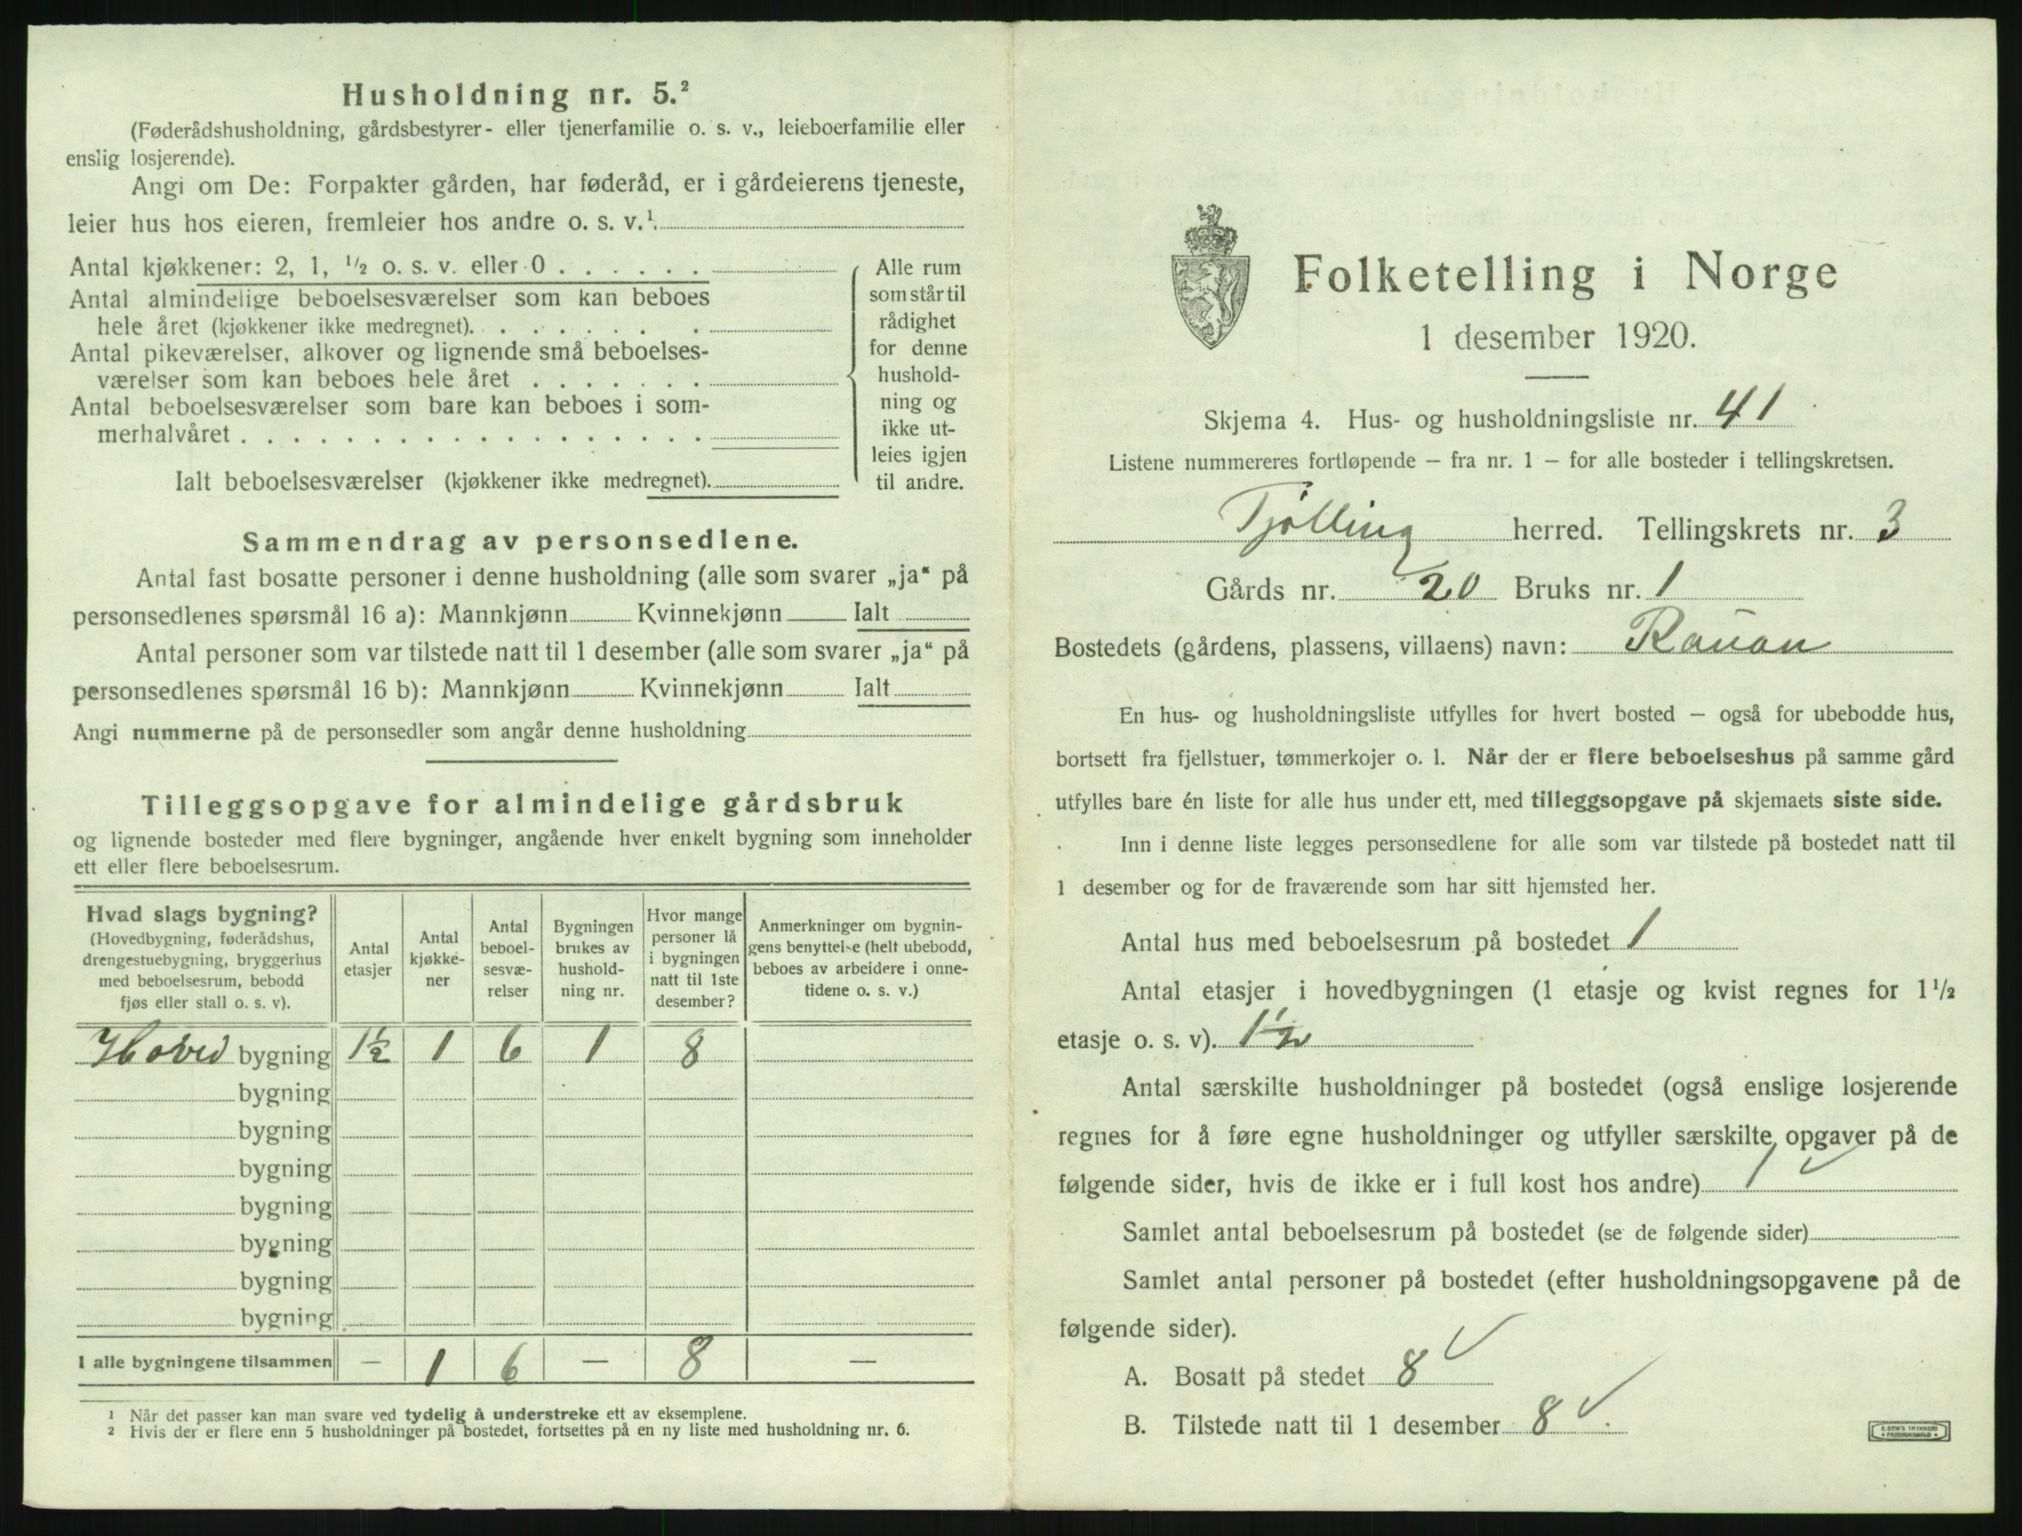 Husholdning nr. 5.²
(Føderådshusholdning, gårdsbestyrer- eller tjenerfamilie o. s. v., leieboerfamilie eller
enslig losjerende).
Angi om De: Forpakter gården, har føderåd, er i gårdeierens tjeneste,
leier hus hos eieren, fremleier hos andre o. s. v.¹.
Antal kjøkkener: 2, 1, ½ o. s. v. eller 0 . . . . . .
Antal almindelige beboelsesværelser som kan beboes
hele året (kjøkkener ikke medregnet). . . . . . . .
Antal pikeværelser, alkover og lignende små beboelses-
værelser som kan beboes hele året . . . . . . .
Antal beboelsesværelser som bare kan beboes i som-
merhalvåret . . . . . . . . . . . . . . . . . .
Ialt beboelsesværelser (kjøkkener ikke medregnet).
Alle rum
som står til
rådighet
for denne
hushold-
ning og
ikke ut-
leies igjen
til andre.
Sammendrag av personsedlene.
Antal fast bosatte personer i denne husholdning (alle som svarer „ja“ på
personsedlenes spørsmål 16 a): Mannkjønn Kvinnekjønn Ialt
Antal personer som var tilstede natt til 1 desember (alle som svarer „ja“ på
personsedlenes spørsmål 16 b): Mannkjønn Kvinnekjønn Ialt
Angi nummerne på de personsedler som angår denne husholdning
Tilleggsopgave for almindelige gårdsbruk
og lignende bosteder med flere bygninger, angående hver enkelt bygning som inneholder
ett eller flere beboelsesrum.
Hvad slags bygning?
(Hovedbygning, føderådshus,
drengestuebygning, bryggerhus
med beboelsesrum, bebodd
fjøs eller stall o. s. v).
Antal
etasjer
Antal
kjøkke-
ner
Antal
beboel-
sesvæ-
relser
Bygningen
brukes av
hushold-
ning nr.
Hvor mange
personer lå
i bygningen
natt til 1ste
desember?
Anmerkninger om bygnin-
gens benyttelse (helt ubebodd,
beboes av arbeidere i onne-
tidene o. s. v.)
Hoved bygning 1½ 1 6 1 8
bygning
bygning
bygning
bygning
bygning
bygning
bygning
I alle bygningene tilsammen — 1 6 — 8 —
¹ Når det passer kan man svare ved tydelig å understreke ett av eksemplene.
² Hvis der er flere enn 5 husholdninger på bostedet, fortsettes på en ny liste med husholdning nr. 6.
Folketelling i Norge
1 desember 1920.
Skjema 4. Hus- og husholdningsliste nr. 41
Listene nummereres fortløpende – fra nr. 1 – for alle bosteder i tellingskretsen.
Tjølling herred. Tellingskrets nr. 3
Gårds nr. 20 Bruks nr. 1
Bostedets (gårdens, plassens, villaens) navn: Rauan
En hus- og husholdningsliste utfylles for hvert bosted – også for ubebodde hus,
bortsett fra fjellstuer, tømmerkojer o. l. Når der er flere beboelseshus på samme gård
utfylles bare én liste for alle hus under ett, med tilleggsopgave på skjemaets siste side.
Inn i denne liste legges personsedlene for alle som var tilstede på bostedet natt til
1 desember og for de fraværende som har sitt hjemsted her.
Antal hus med beboelsesrum på bostedet 1
Antal etasjer i hovedbygningen (1 etasje og kvist regnes for 1½
etasje o. s. v). 1½
Antal særskilte husholdninger på bostedet (også enslige losjerende
regnes for å føre egne husholdninger og utfyller særskilte opgaver på de
følgende sider, hvis de ikke er i full kost hos andre) 1 ✓
Samlet antal beboelsesrum på bostedet (se de følgende sider)
Samlet antal personer på bostedet (efter husholdningsopgavene på de
følgende sider).
A. Bosatt på stedet 8 ✓
B. Tilstede natt til 1 desember 8 ✓